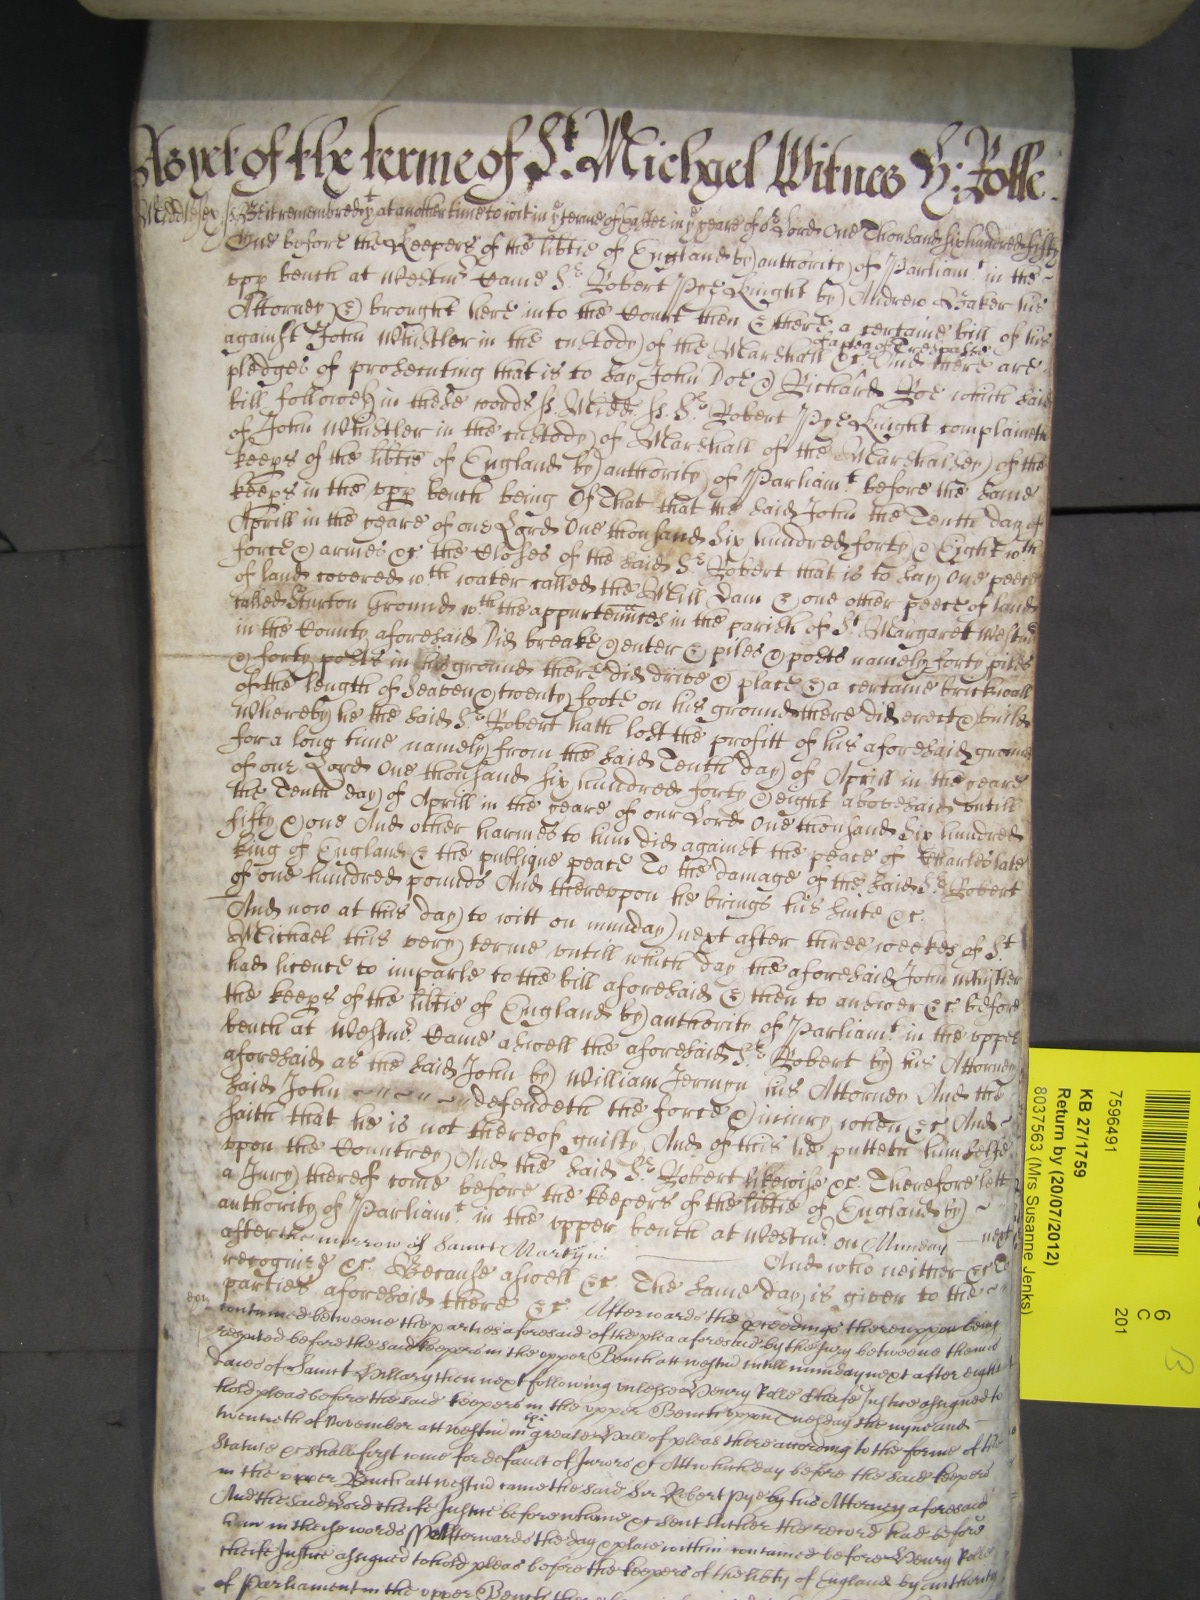 As yet of the terme of St. Michael Witnes H: Rolle
Middlesex ss. Be it remembred yt at another time to wit in ye terme of Easter in ye yeare of or Lord One Thousand six hundred fifty
One before the Keepers of the lib'tie of England by authority of Parliamt in the
upp bench at Westmr Came Sr Robert Pye Knight by Andrew Baker his
Attorney & brought here into the Court then & there a certaine bill of his
against John Whistler in the custody of the Marshall &c of a plea of Trespasse And there are
pledges of prosecuting that is to say John Doe & Richard Roe which said
bill followeth in these words ss. Midd. ss. Sr Robert Pye Knight complaineth
of John Whistler in the custody of Marshall of the Marshalsey of the
keeps of the lib'tie of England by authority of Parliamt before the same
keeps in the upp bench being Of That that the said John the Tenth day of
Aprill in the yeare of our Lord One thousand Six hundred forty & Eight wth
force & armes &c the Closes of the said Sr Robert that is to say One peece
of land covered wth water called the Mill Dam & one other peece of land
called Sturton Ground wth the appurtenn'ces in the parish of St Margaret Westmr
in the County aforesaid Did breake & enter & piles & posts namely forty piles
& forty posts in his ground there did drive & place & a certaine brickwall
of the length of Seaven & twenty foote on his ground there did erect & build
Whereby he the said Sr Robert hath lost the profitt of his aforesaid ground
for a long time namely from the said Tenth day of Aprill in the yeare
of our Lord One thousand six hundred forty & eight abovesaid untill
the Tenth day of Aprill in the yeare of our Lord One thousand Six hundred
fifty & one And other harmes to him did against the peace of Charles late
King of England & the publique peace To the damage of the said Sr Robert
of one hundred pounds And thereupon he brings his suite &c.
And now at this day to witt on munday next after three weekes of St
Michael this very terme untill which day the aforesaid John Whistler
had licence to imparle to the bill aforesaid & then to answer &c before
the keeps of the lib'tie of England by authority of Parliamt in the upper
bench at Westmr. Came aswell the aforesaid Sr Robert by his Attorney
aforesaid as the said John by William Jermyn his Attorney And the
said John defendeth the force & iniury when &c And
saith that he is not thereof guilty And of this he putteth himselfe
upon the Countrey And the said Sr Robert likewise &c. Therefore lett
a Jury thereof come before the keepers of the lib'tie of England by
authority of Parliamt in the upper bench at Westmr. on Munday next
after the morrow of Saint Martyn And who neither &c To
recognize &c. Because aswell &c. The same day is given to the
parties aforesaid there &c. Afterwards the p'ceedings thereuppon being
continued betweene the parties aforesaid of the plea aforesaid by the Jury betweene them is
respited before the said keepers in the upper Bench att Westmr untill munday next after eight
daies of Saint Hillary then next following unlesse Henry Rolle Cheife Justice assigned to
hold pleas before the said keepers in the upper Bench uppon Tuesday the nyne and
twentieth of November att Westmr in ye greater Hall of pleas there according to the forme of the
Statute &c shall first come for default of Jurors &c Att which day before the said keepers
in the upper Bench att Westmr came the said Sir Robert Pye by his Attorney aforesaid
And the said Lord cheife Justice before whome &c sent hither the record had before
him in these words ss Afterwards the day & place within contained before Henry Rolle
cheife Justice assigned to hold pleas before the keepers of the lib'ty of England by authority
of Parliament in the upper Bench
7596491
KB 27/1759
Return by (20/07/2012)
8037563 (Mrs Susanne Jenks)
6
C
201